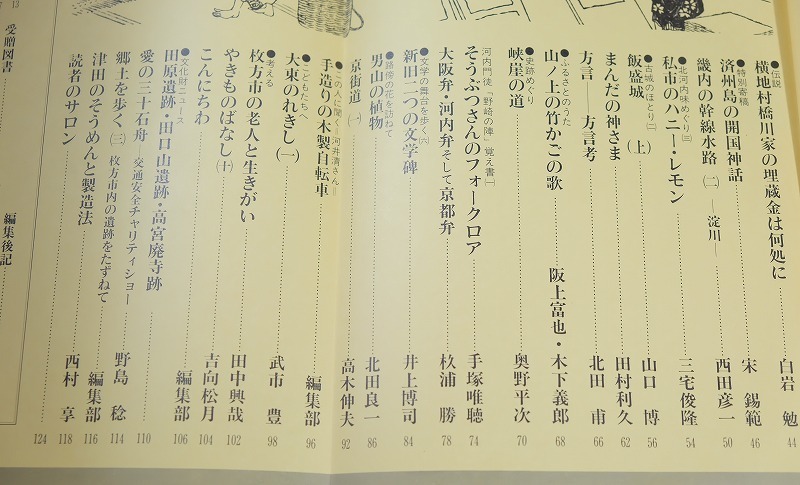 ●伝説
横地村橋川家の埋蔵金は何処に 白岩 勉 44
●特別寄稿
済州島の開国神話 宋 錫範 46
畿内の幹線水路(二)―淀川― 西田彦一 50
●北河内味めぐり(三)
私市のハニー・レモン 三宅俊隆 54
●古城のほとり(二)
飯盛城(上) 山口 博 56
まんだの神さま 田村利久 62
方言――方言考 北田 甫 66
●ふるさとのうた
山ノ上の竹かごの歌 阪上富也・木下義郎 68
●史跡めぐり
峡崖の道 奥野平次 70
河内門徒「野崎の陣」覚え書(一)
そうぶつさんのフォークロア 手塚唯聴 74
大阪弁・河内弁そして京都弁 杦浦 勝 78
●文学の舞台を歩く(六)
新旧二つの文学碑 井上博司 84
●路傍の花を訪ねて
男山の植物 北田良一 86
京街道(一) 高木伸夫 92
●この人に聞く―河井清さん―
手造りの木製自転車 編集部 96
●こどもたちへ
大東のれきし(一) 武市 豊 98
●考える
枚方市の老人と生きがい 田中興哉 102
やきものばなし(十) 吉向松月 104
こんにちわ 編集部 106
●文化財ニュース
田原遺跡・田口山遺跡・高宮廃寺跡 110
愛の三十石舟 交通安全チャリティショー
郷土を歩く(三) 枚方市内の遺跡をたずねて 野島 稔 114
津田のそうめんと製造法 編集部 116
読者のサロン 西村 享 118
124
受贈図書
編集後記
13